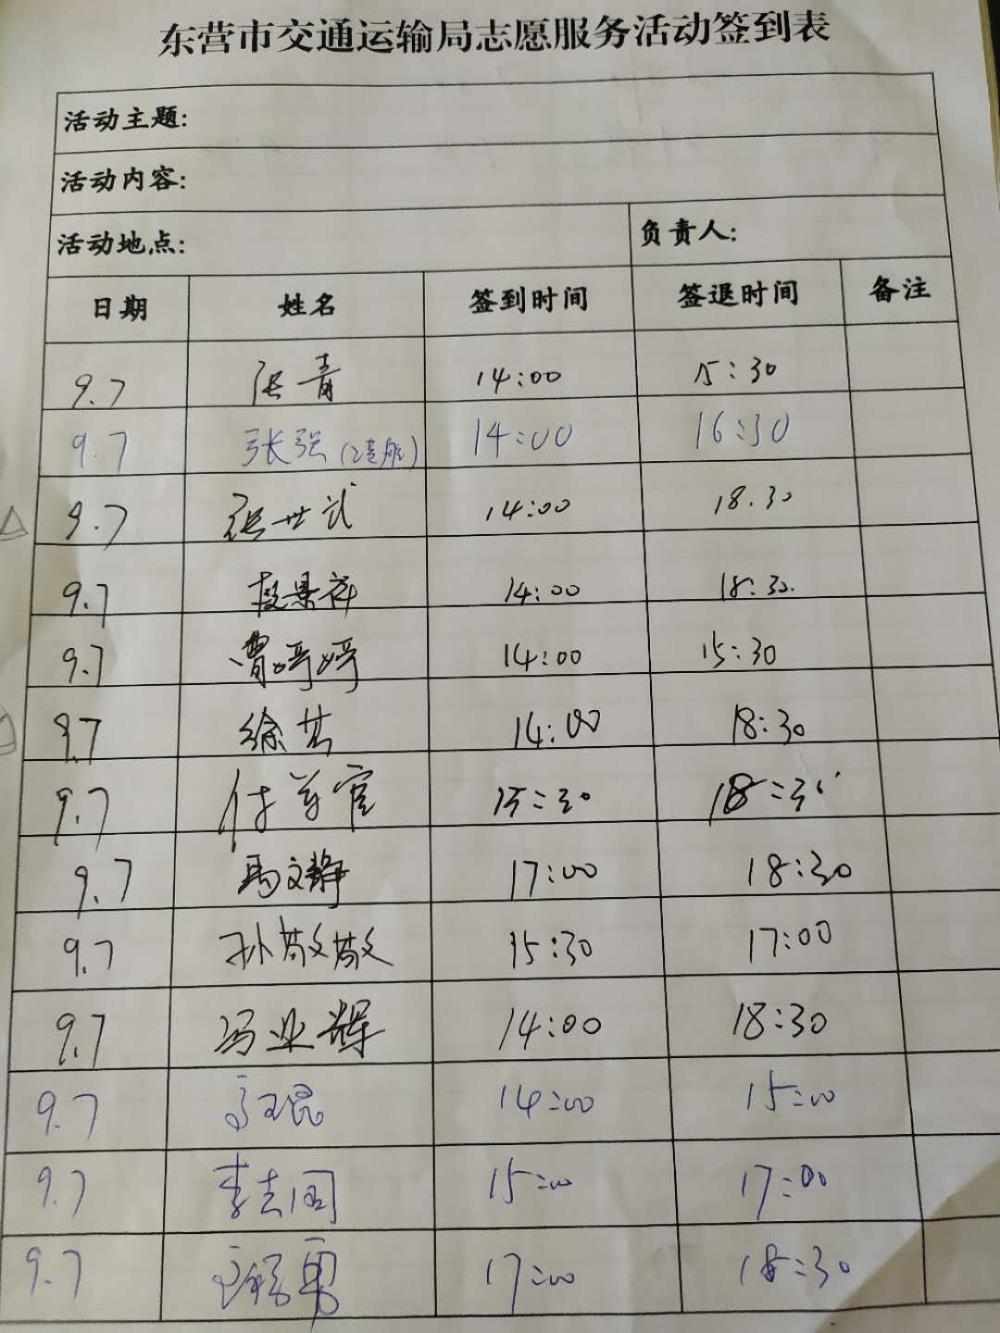 东营市交通运输局志愿服务活动签到表
活动主题:
活动内容:
活动地点: 负责人:
日期 姓名 签到时间 签退时间 备注
9.7 张青 14:00 15:30
9.7 张强 14:00 16:30
9.7 张世武 14:00 18.30
9.7 段景祥 14:00 18:30.
9.7 曹婷婷 14:00 15:30
9.7 徐芸 14:00 18:30
9.7 付 官 15:30 18:30
9.7 马文静 17:00 18:30
9.7 孙敬敬 15:30 17:00
9.7 冯业辉 14:00 18:30
9.7 14:00 15:00
9.7 李志国 15:00 17:00
9.7 勇 17:00 18:30